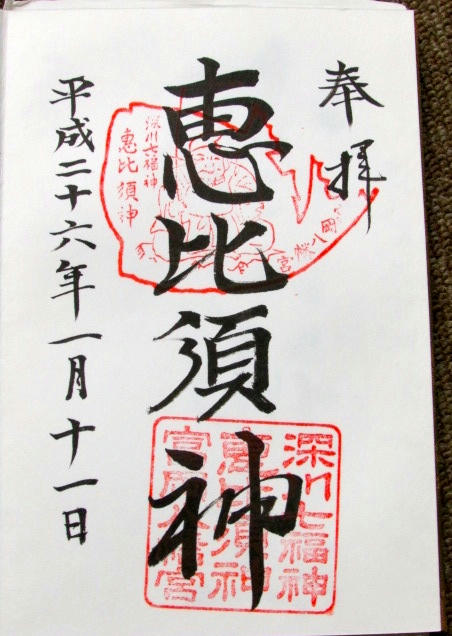 奉拝
恵比須神
平成二十六年一月十一日
深川七福神
恵比須神
冨岡八幡宮
深川七福神
恵比須神
富岡八幡宮